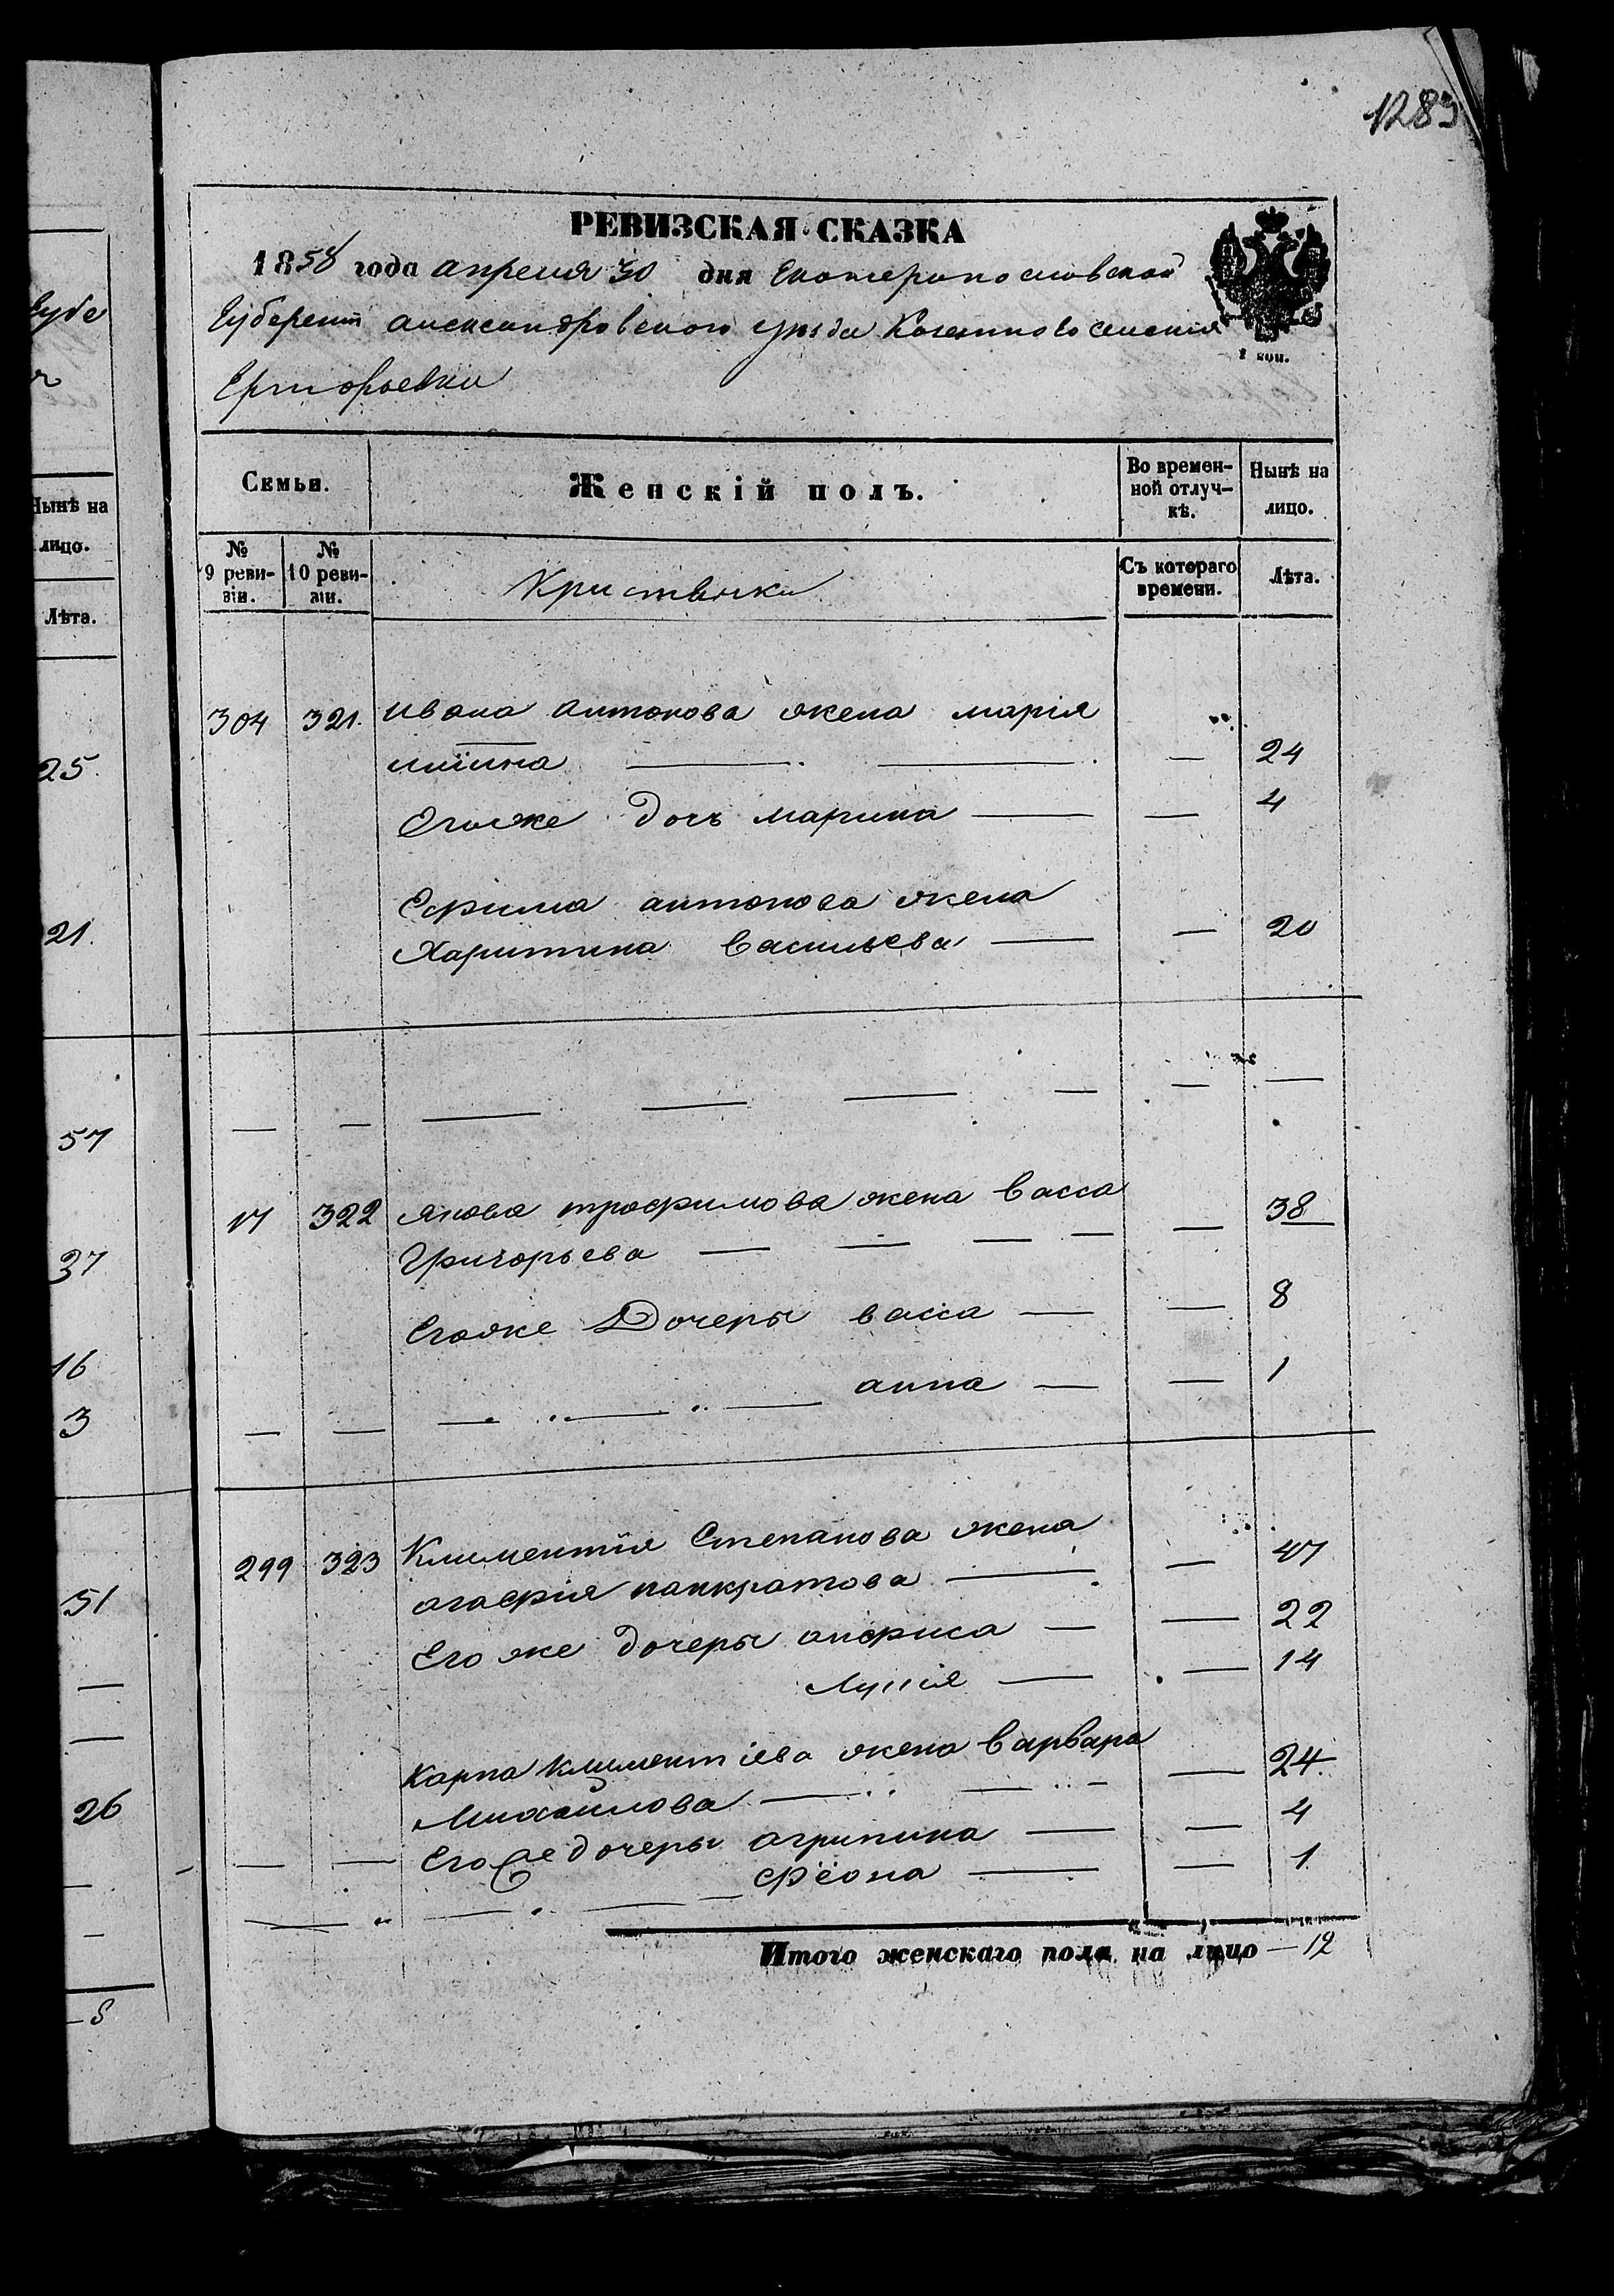 1283
РЕВИЗСКАЯ СКАЗКА
1858 года апреля 30 дня Екатеринославской
Губерении александровского уезда Казенного селения
Григорьевки
1 коп.
Семьи.
Женскій полъ.
Во времен-
ной отлуч-
кѣ.
Нынѣ на
лицо.
№
9 реви-
зіи.
№
10 реви-
зіи.
Съ котораго
времени.
Лѣта.
304 321. ивана антонова жена марія
илїина — — — 24
Егоже дочь марина — — 4
Ефима антонова жена
Харитина Васильева — — 20
17 322 якова трофимова жена васса 38
Григорьева — — — — —
Егоже Дочеры васса — — 8
анна — — 1
299 323 Климентїя Степанова жена 47
агафія панкратова — —
Его же дочеры анфиса — — 22
Лукія — — 14
Карпа климентіева жена варвара 24.
Михайлова — — —
Его же дочеры агрипина — — 4
феона — — 1
Итого женскаго пола на лицо — 12
Губе
Нынѣ на
лицо.
Лѣта.
25.
21.
57
37
16
3
51
26
8